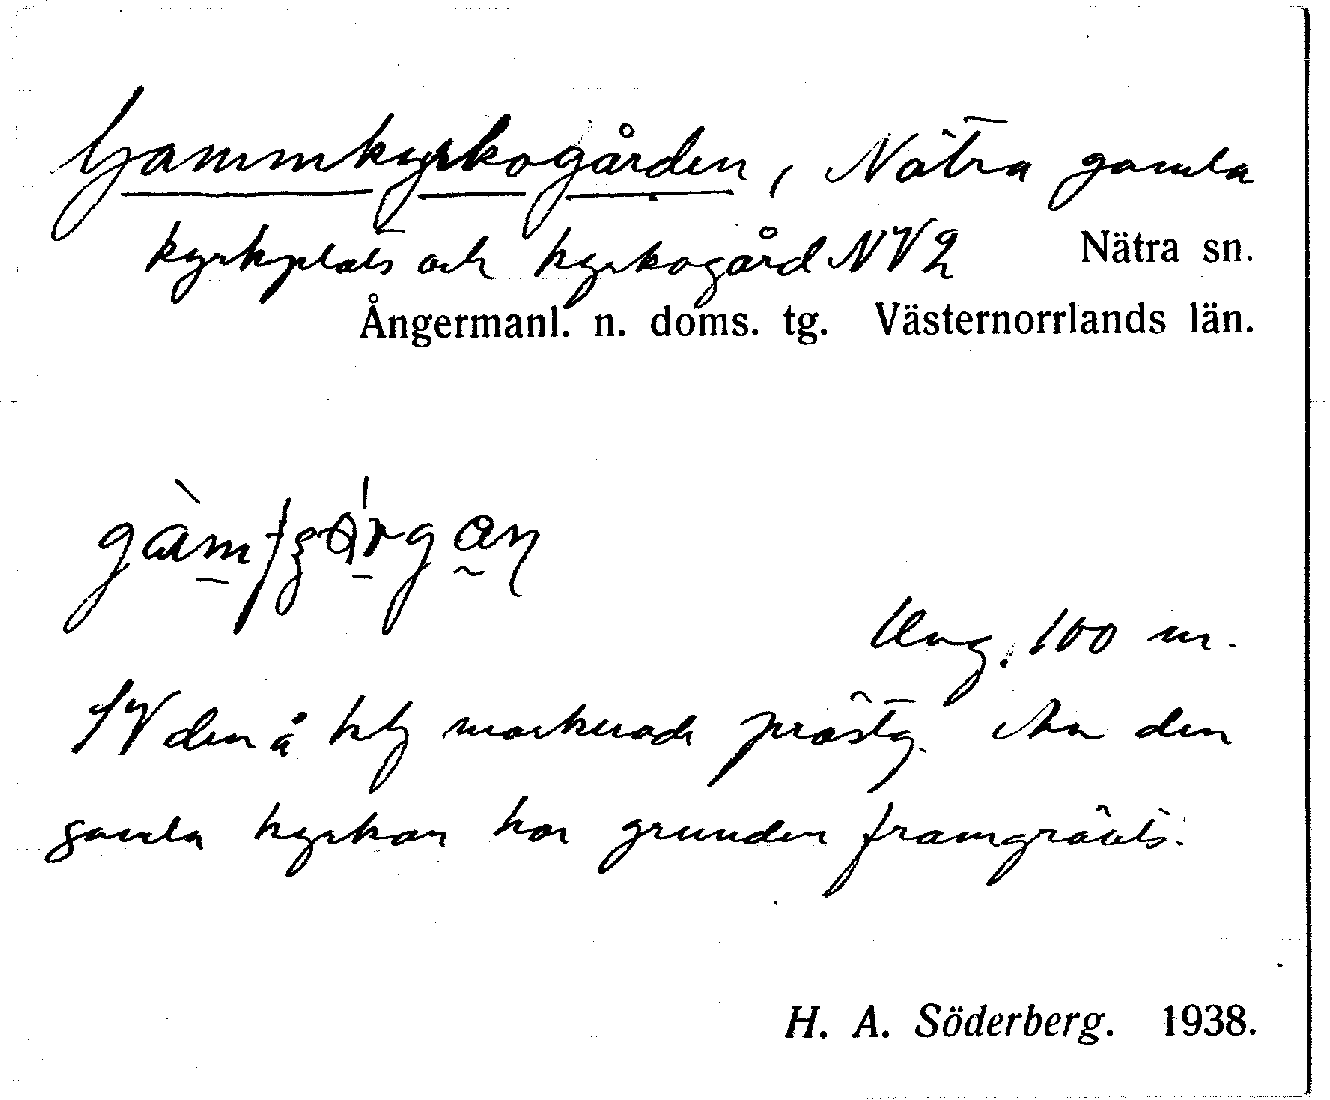 Gammkyrkogården, Nätra gamla
kyrkplats och kyrkogård NV2 Nätra sn.
Ångermanl. n. doms. tg. Västernorrlands län.
Ung. 100 m.
SV den å kbl markerade prästg. Av den
gamla kyrkan har grunden framgrävts.
H. A. Söderberg. 1938.